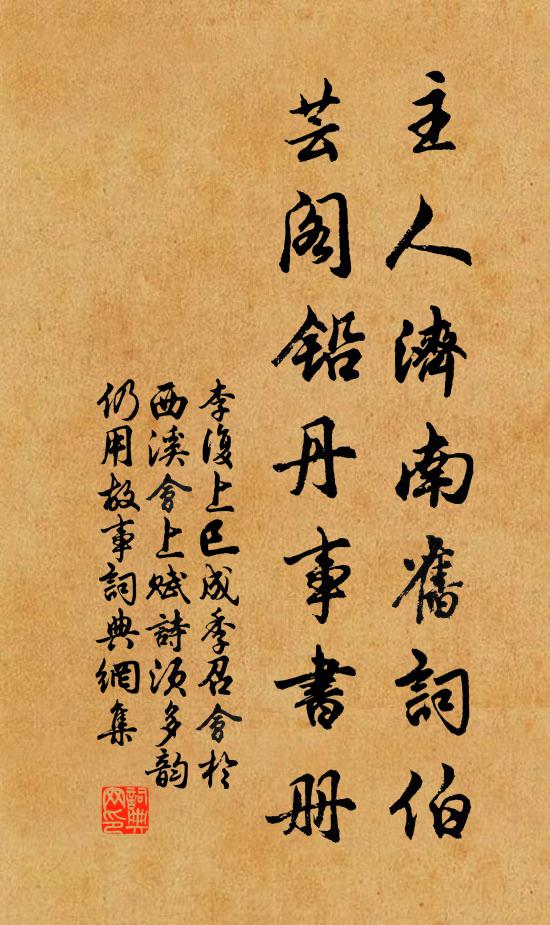 主人濟南舊詞伯
芸阁鉛丹事書册
李復上巳成季召會於
西溪會上賦詩須多韵
仍用故事詞典網集
詞典
网印